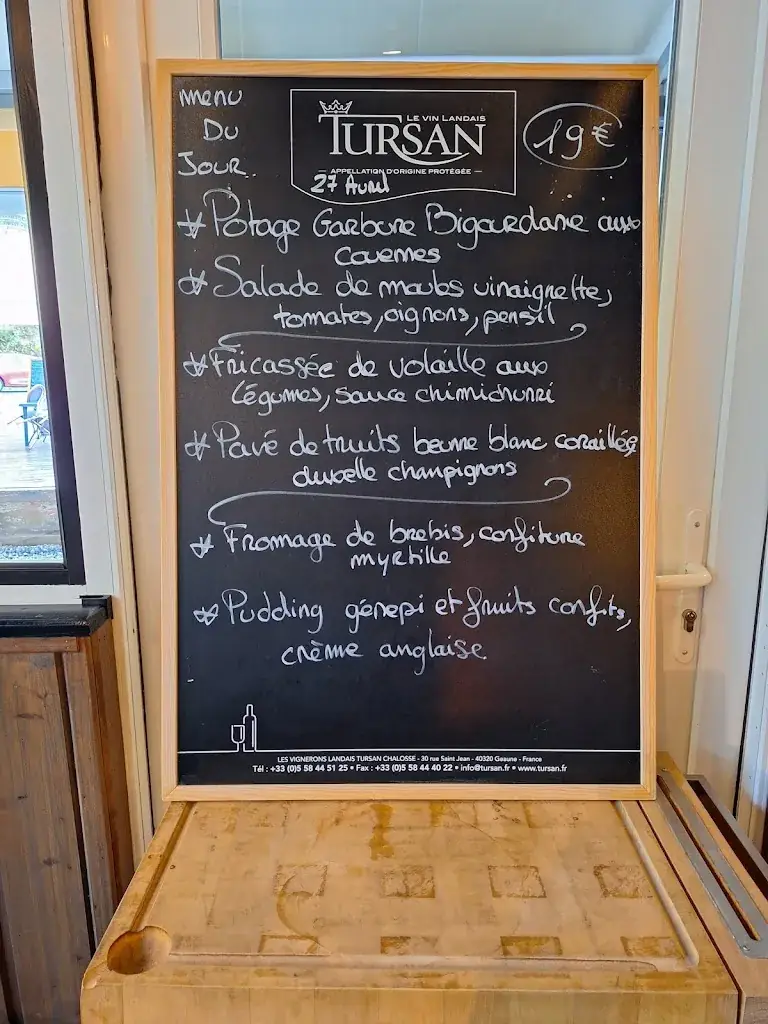 menu
Du
Jour
LE VIN LANDAIS
TURSAN
APPELLATION D'ORIGINE PROTÉGÉE
27 Avril
19€
* Potage Garbure Bigourdane aux
* Salade de
vinaigrette,
tomates, oignons, persil
* Fricassée de volaille aux
légumes, sauce chimichurri
* Pavé de truits beurre blanc coraillée,
duxelle champignons
* Fromage de brebis, confiture
myrtille
* Pudding génepi et fruits confits,
crème anglaise
LES VIGNERONS LANDAIS TURSAN CHALOSSE - 30 rue Saint Jean - 40320 Geaune - France
Tél : +33 (0)5 58 44 51 25 • Fax : +33 (0)5 58 44 40 22 • info@tursan.fr • www.tursan.fr